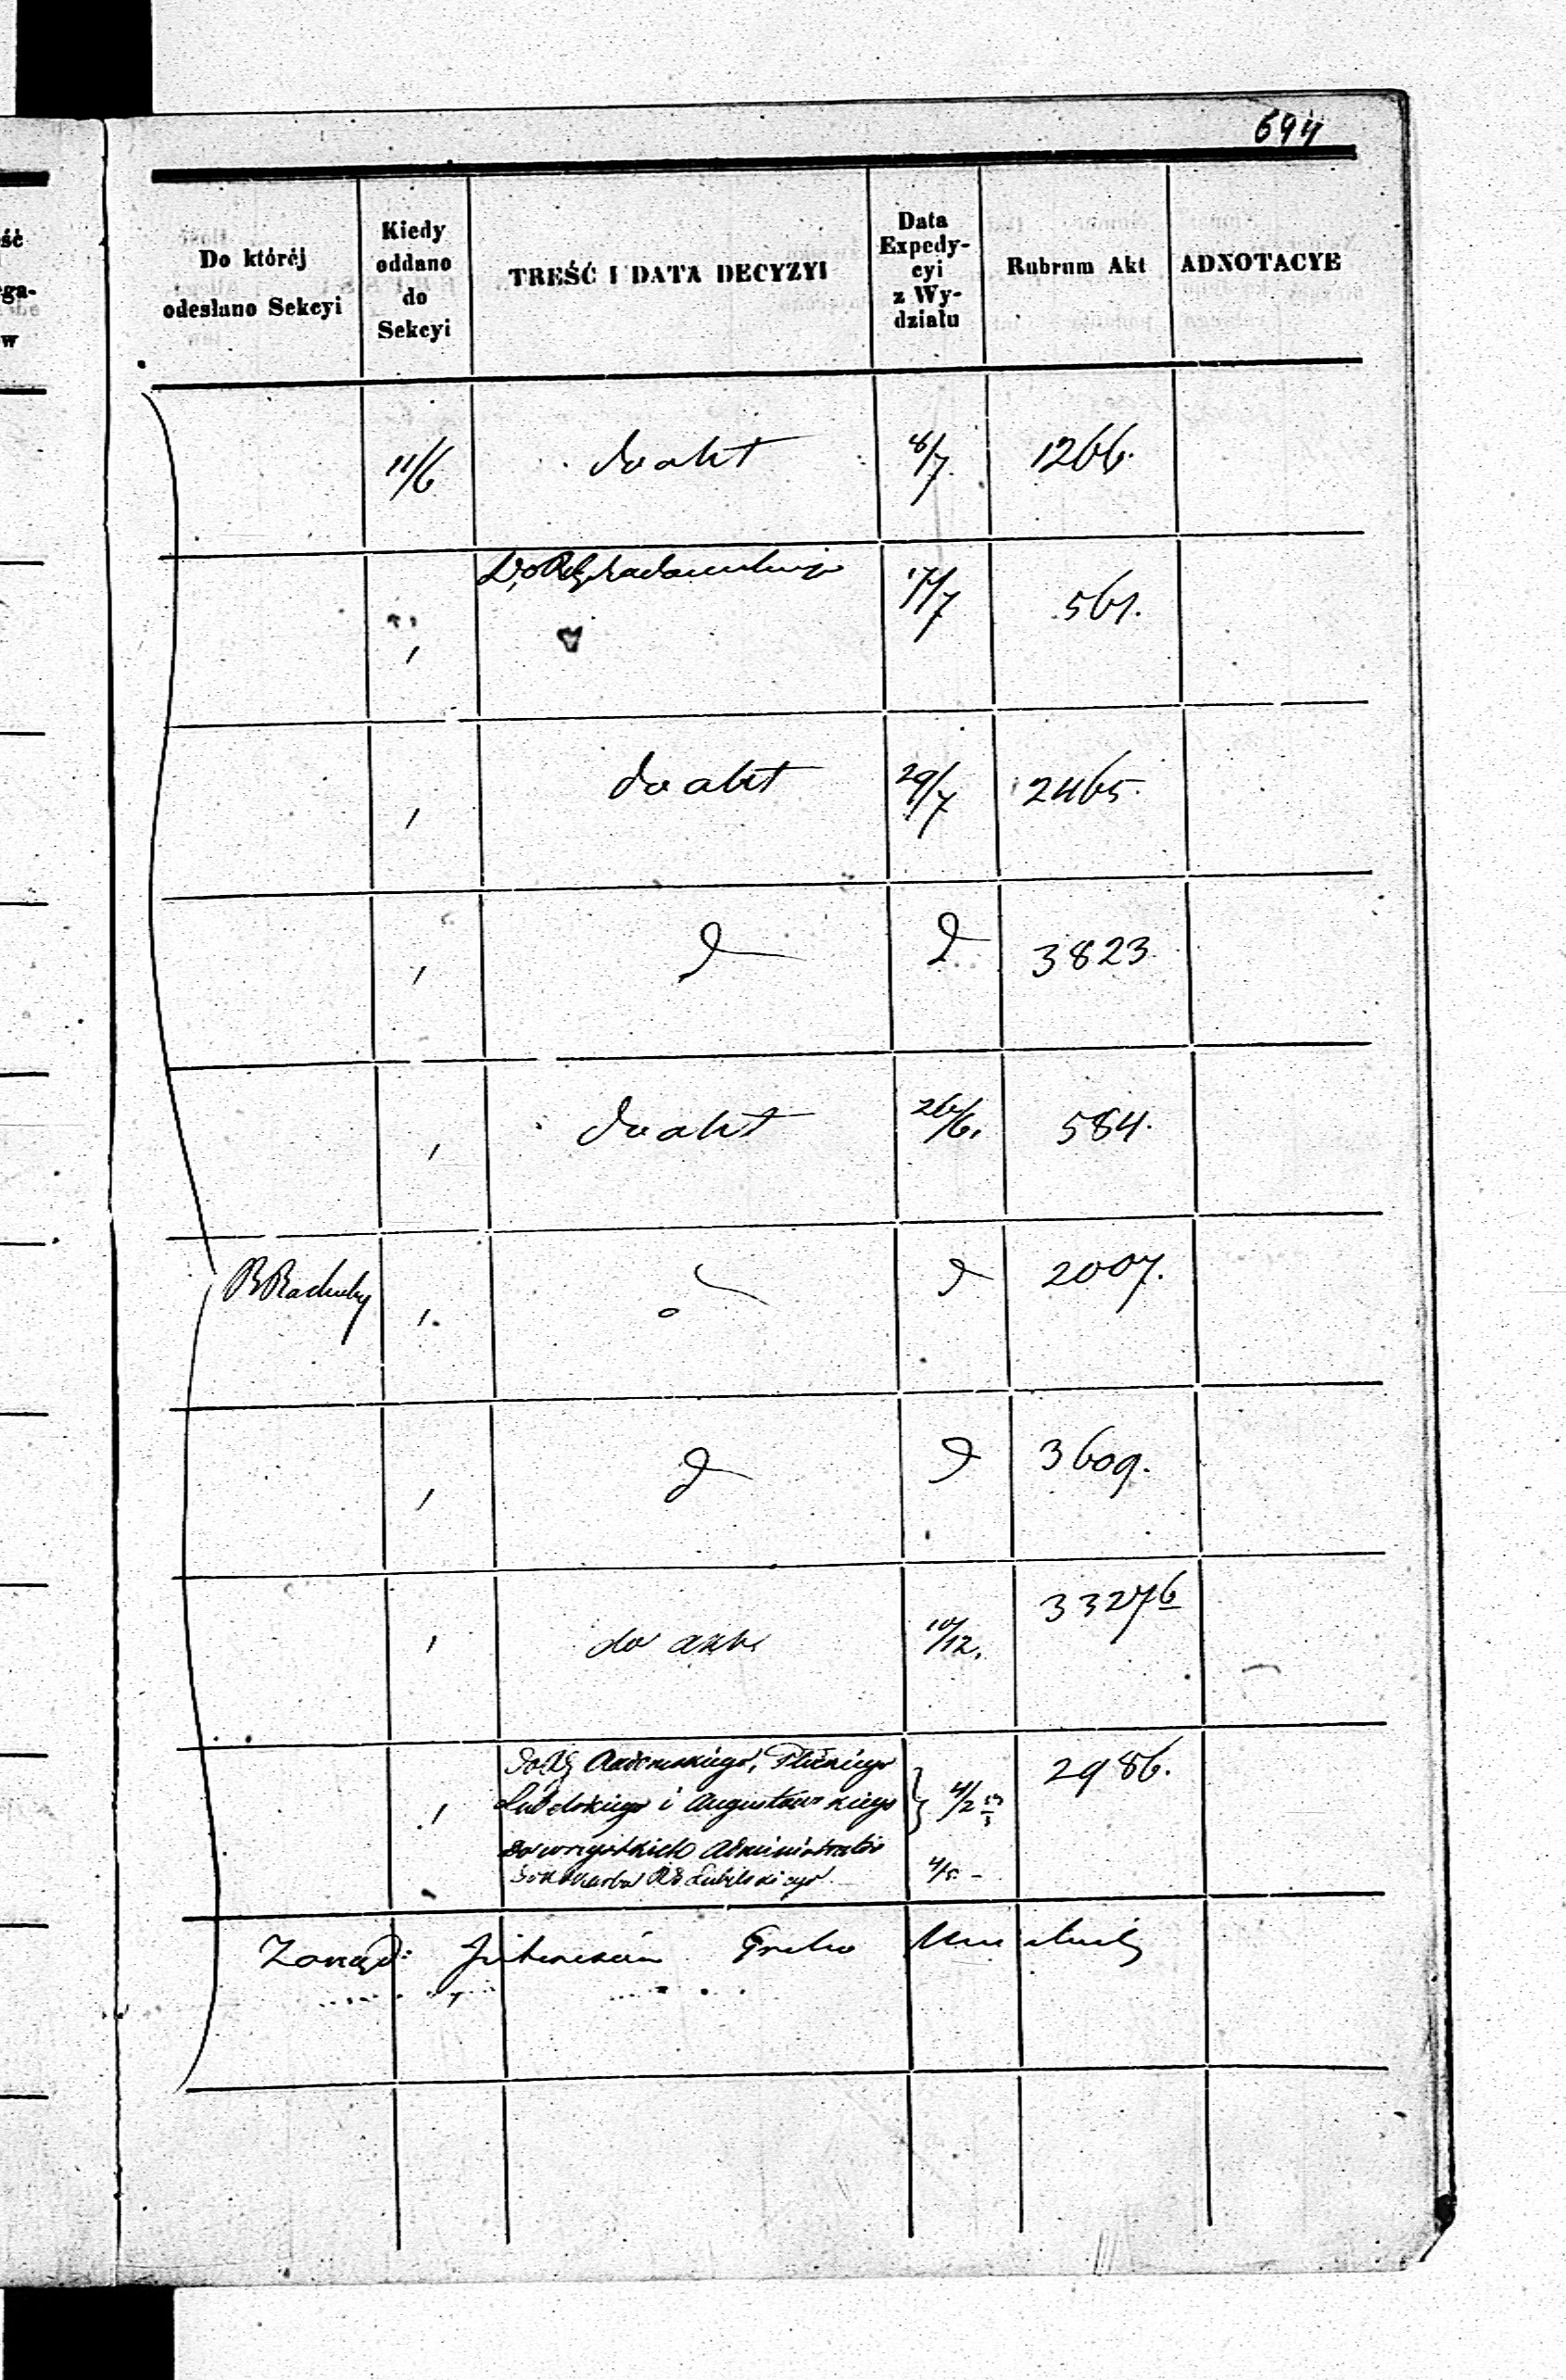 694
Do której odesłano Sekcyi
Kiedy oddano do Sekcyi
TREŚĆ I DATA DECYZYI
Data Expedycyi z Wydziału
Rubrum Akt
ADNOTACYE
11/6 do akt 8/7 1266.
" Do RG 17/7 561.
" do akt 29/7 2465.
" d d 3823.
" do akt 26/6. 584.
" d 2007.
" d d 3609.
" do akt 10/12. 33276
Do RG Radomskiego, Płockiego 2986.
Lubelskiego i Augustowskiego 4/2
do wszystkich Administratorów
Lubelskiego 4/5 -
Zarząd: